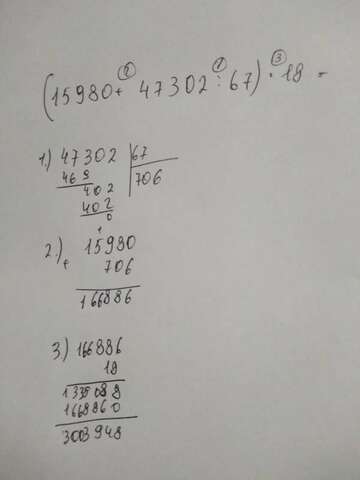 ② ① ③
(15980 + 47302 : 67) · 18 =
1.) 47302 67
469 706
402
402
0
1
2.) 15980
+ 706
166886
3.) 166886
18
1335088
1668860
3003948